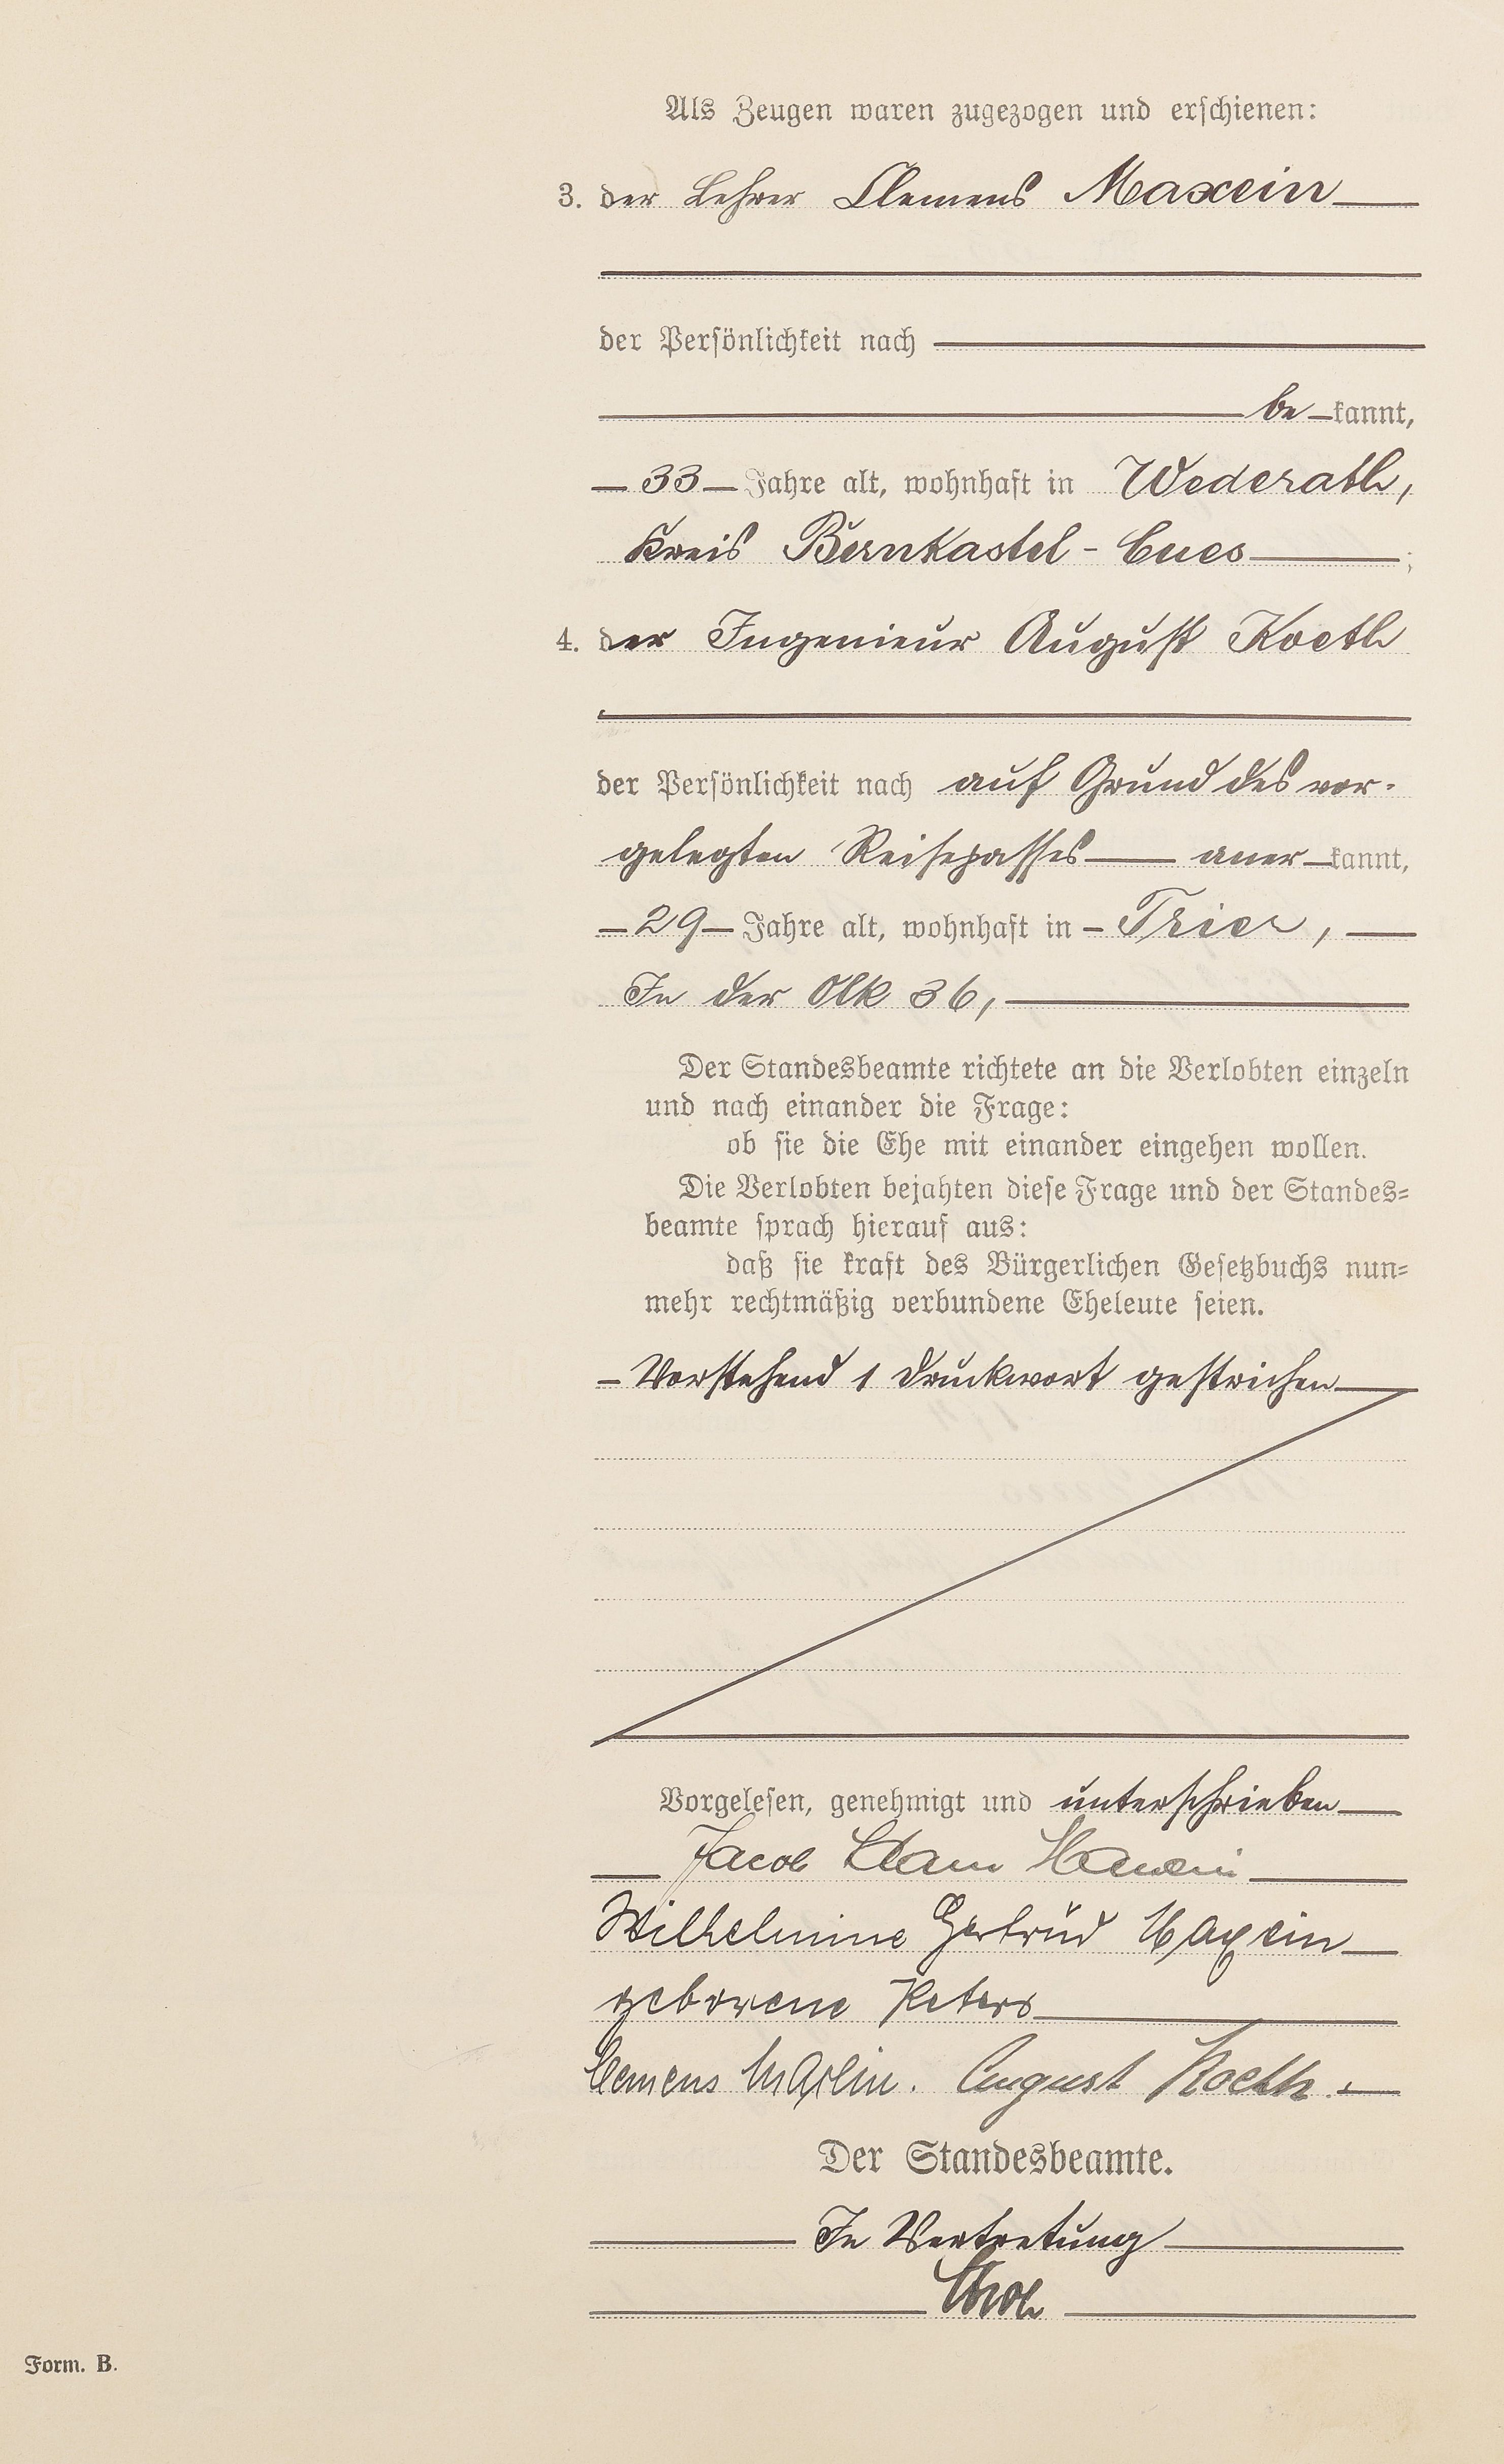 Als Zeugen waren zugezogen und erschienen:
3. der Lehrer Clemens Maxein
der Persönlichkeit nach
be kannt,
33 Jahre alt, wohnhaft in Wederath,
Kreis Bernkastel - Cues ;
4. der Ingenieur August Koeth
der Persönlichkeit nach auf Grund des vor-
gelegten Reisepasses aner kannt,
29 Jahre alt, wohnhaft in Trier,
In der Olk 36,
Der Standesbeamte richtete an die Verlobten einzeln
und nach einander die Frage:
ob sie die Ehe mit einander eingehen wollen.
Die Verlobten bejahten diese Frage und der Standes-
beamte sprach hierauf aus:
daß sie kraft des Bürgerlichen Gesetzbuchs nun-
mehr rechtmäßig verbundene Eheleute seien.
Vorstehend 1 Druckwort gestrichen
Vorgelesen, genehmigt und unterschrieben
Jacob Maxein
Wilhelmine Gertrud Maxein
geborene Peters
Clemens Maxein. August Koeth.
Der Standesbeamte.
In Vertretung
Form. B.